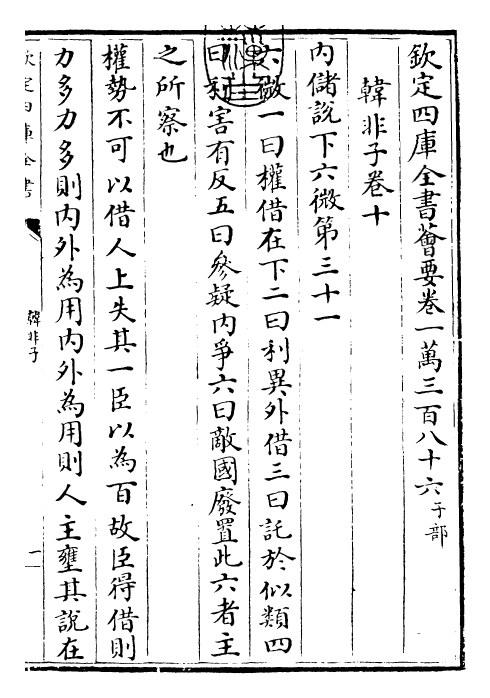 欽定四庫全書薈要卷一萬三百八十六子部
韓非子卷十
內儲說下六微第三十一
六微一曰權借在下二曰利異外借三曰託於似類四
曰利害有反五曰參疑內爭六曰敵國廢置此六者主
之所察也
權勢不可以借人上失其一臣以為百故臣得借則
力多力多則內外為用內外為用則人主壅其說在
欽定四庫全書
韓非子
一